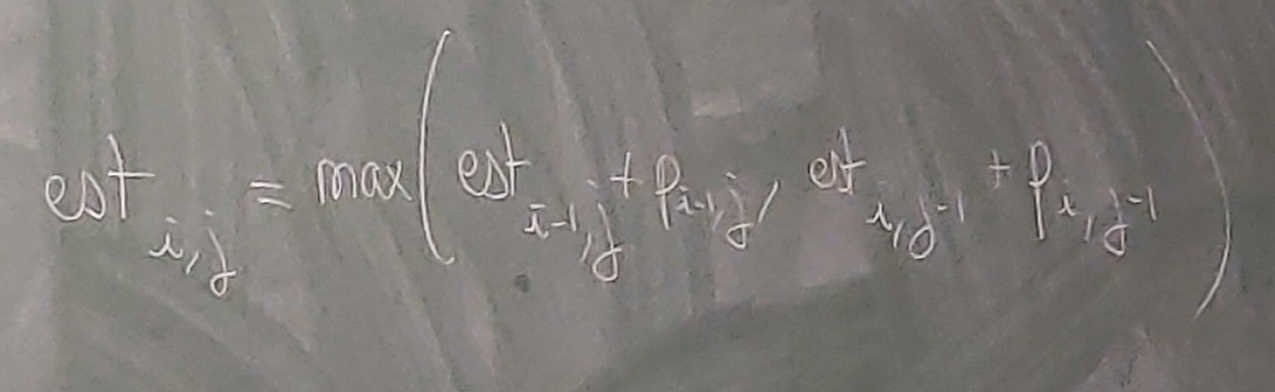 est_{i,j} = max( est_{i-1,j} + p_{i-1,j}, est_{i,j-1} + p_{i,j-1} )